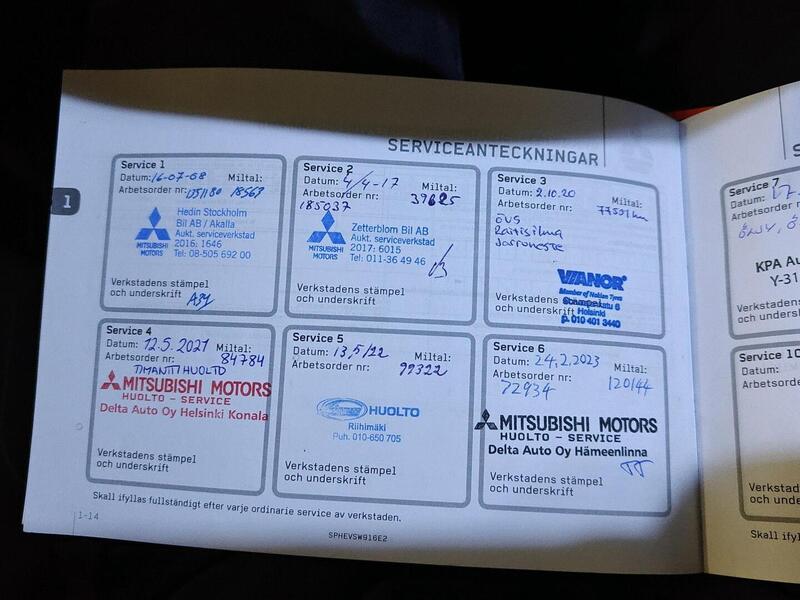 SERVICEANTECKNINGAR
1
Service 1
Datum: 16-07-08 Miltal:
Arbetsorder nr: 18569
MITSUBISHI MOTORS
Hedin Stockholm
Bil AB / Akalla
Aukt. serviceverkstad
2016: 1646
Tel: 08-505 692 00
Verkstadens stämpel
och underskrift
Service 2
Datum: 4/4-17 Miltal:
Arbetsorder nr: 39625
185037
MITSUBISHI MOTORS
Zetterblom Bil AB
Aukt. serviceverkstad
2017: 6015
Tel: 011-36 49 46
Verkstadens stämpel
och underskrift
Service 3
Datum: 2.10.20 Miltal:
Arbetsorder nr:
ÖVS
Raitisilma
Jarruneste
VIANOR
Member of Nokian Tyres
Helsinki
p. 010 401 3440
Verkstadens stämpel
och underskrift
Service 4
Datum: 12.5.2021 Miltal:
Arbetsorder nr: 84784
TIMANTTIHUOLTO
MITSUBISHI MOTORS
HUOLTO - SERVICE
Delta Auto Oy Helsinki Konala
Verkstadens stämpel
och underskrift
Service 5
Datum: 13,5/22 Miltal:
Arbetsorder nr: 99322
HUOLTO
Riihimäki
Puh. 010-650 705
Verkstadens stämpel
och underskrift
Service 6
Datum: 24.2.2023 Miltal:
Arbetsorder nr: 120144
72934
MITSUBISHI MOTORS
HUOLTO - SERVICE
Delta Auto Oy Hämeenlinna
Verkstadens stämpel
och underskrift
Skall ifyllas fullständigt efter varje ordinarie service av verkstaden.
1-14
SPHEVSW916E2
S
Service 7
Datum:
Arbetsorder
KPA Au
Y-31
Verkstadens
och unders
Service 10
Datum:
Arbetsorde
Verkstade
och under
Skall ifyl